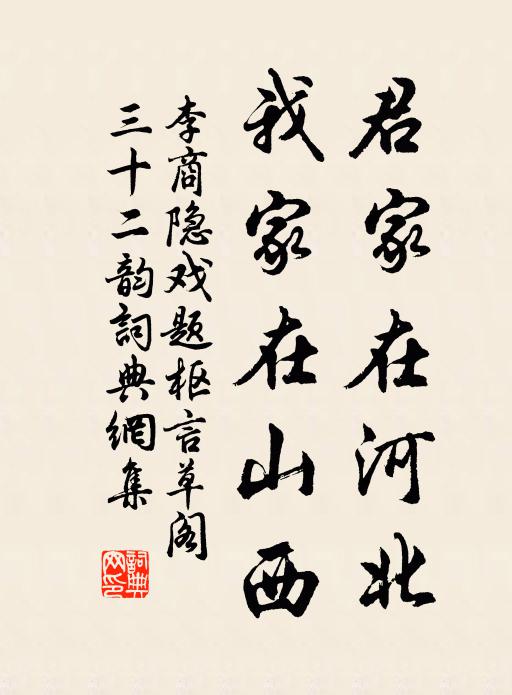 君家在河北
我家在山西
李商隐戏题枢言草阁
三十二韵詞典網集
詞典
网印